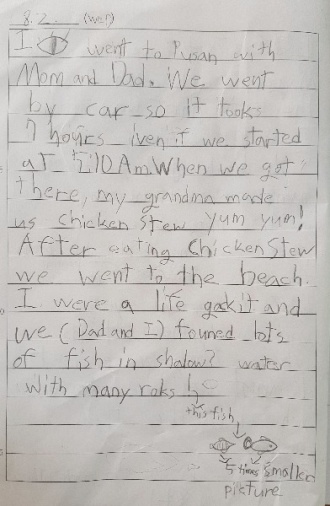 8.2 (wed)
I went to Pusan with
Mom and Dad. We went
by car so it tooks
7 hours iven if we started
at 5:10 Am. When we got
there, my grandma made
us chicken stew yum yum!
After eating Chicken Stew
we went to the beach.
I were a life gakit and
we (Dad and I) founed lots
of fish in shalow? water
with many roks!
this fish
5 times smaller
picture